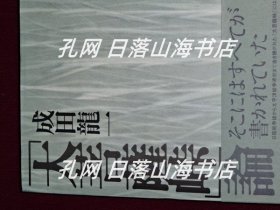 孔网 日落山海书店
孔网 日落山海书店
孔网 日落山海书店
そこにはすべてが
書かれていた
「大菩薩峠」論
成田龍一